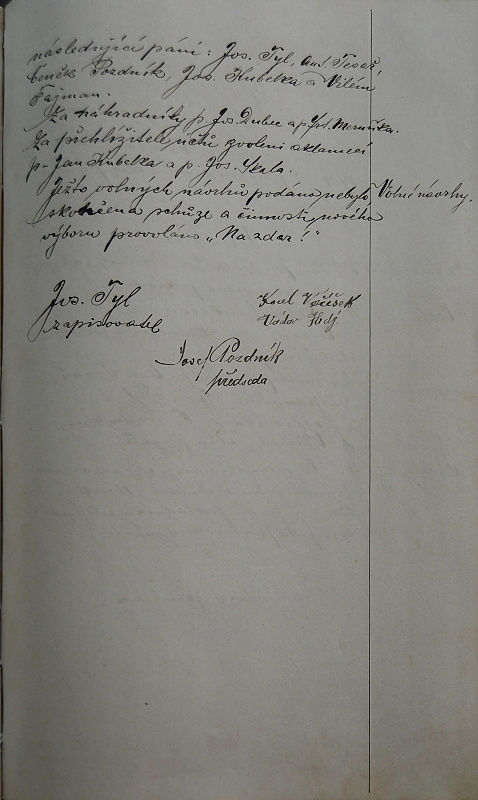 následující páni: Jos. Tyl, Ant. Tesař,
Čeněk Pozdník, Jos. Kubelka a Vilém
Fajman.
Za náhradníky p. Jos. Dubec a p. Frt. Meruňka.
Za přehlížitele účtů zvoleni aklamací
p. Jan Kubelka a p. Jos. Skala.
Ježto volných návrhů podáno nebylo, Volné návrhy.
skončena schůze a činnosti nového
výboru provoláno „Na zdar!"
Jos. Tyl
zapisovatel
Karel
Václav
Josef Pozdník
předseda